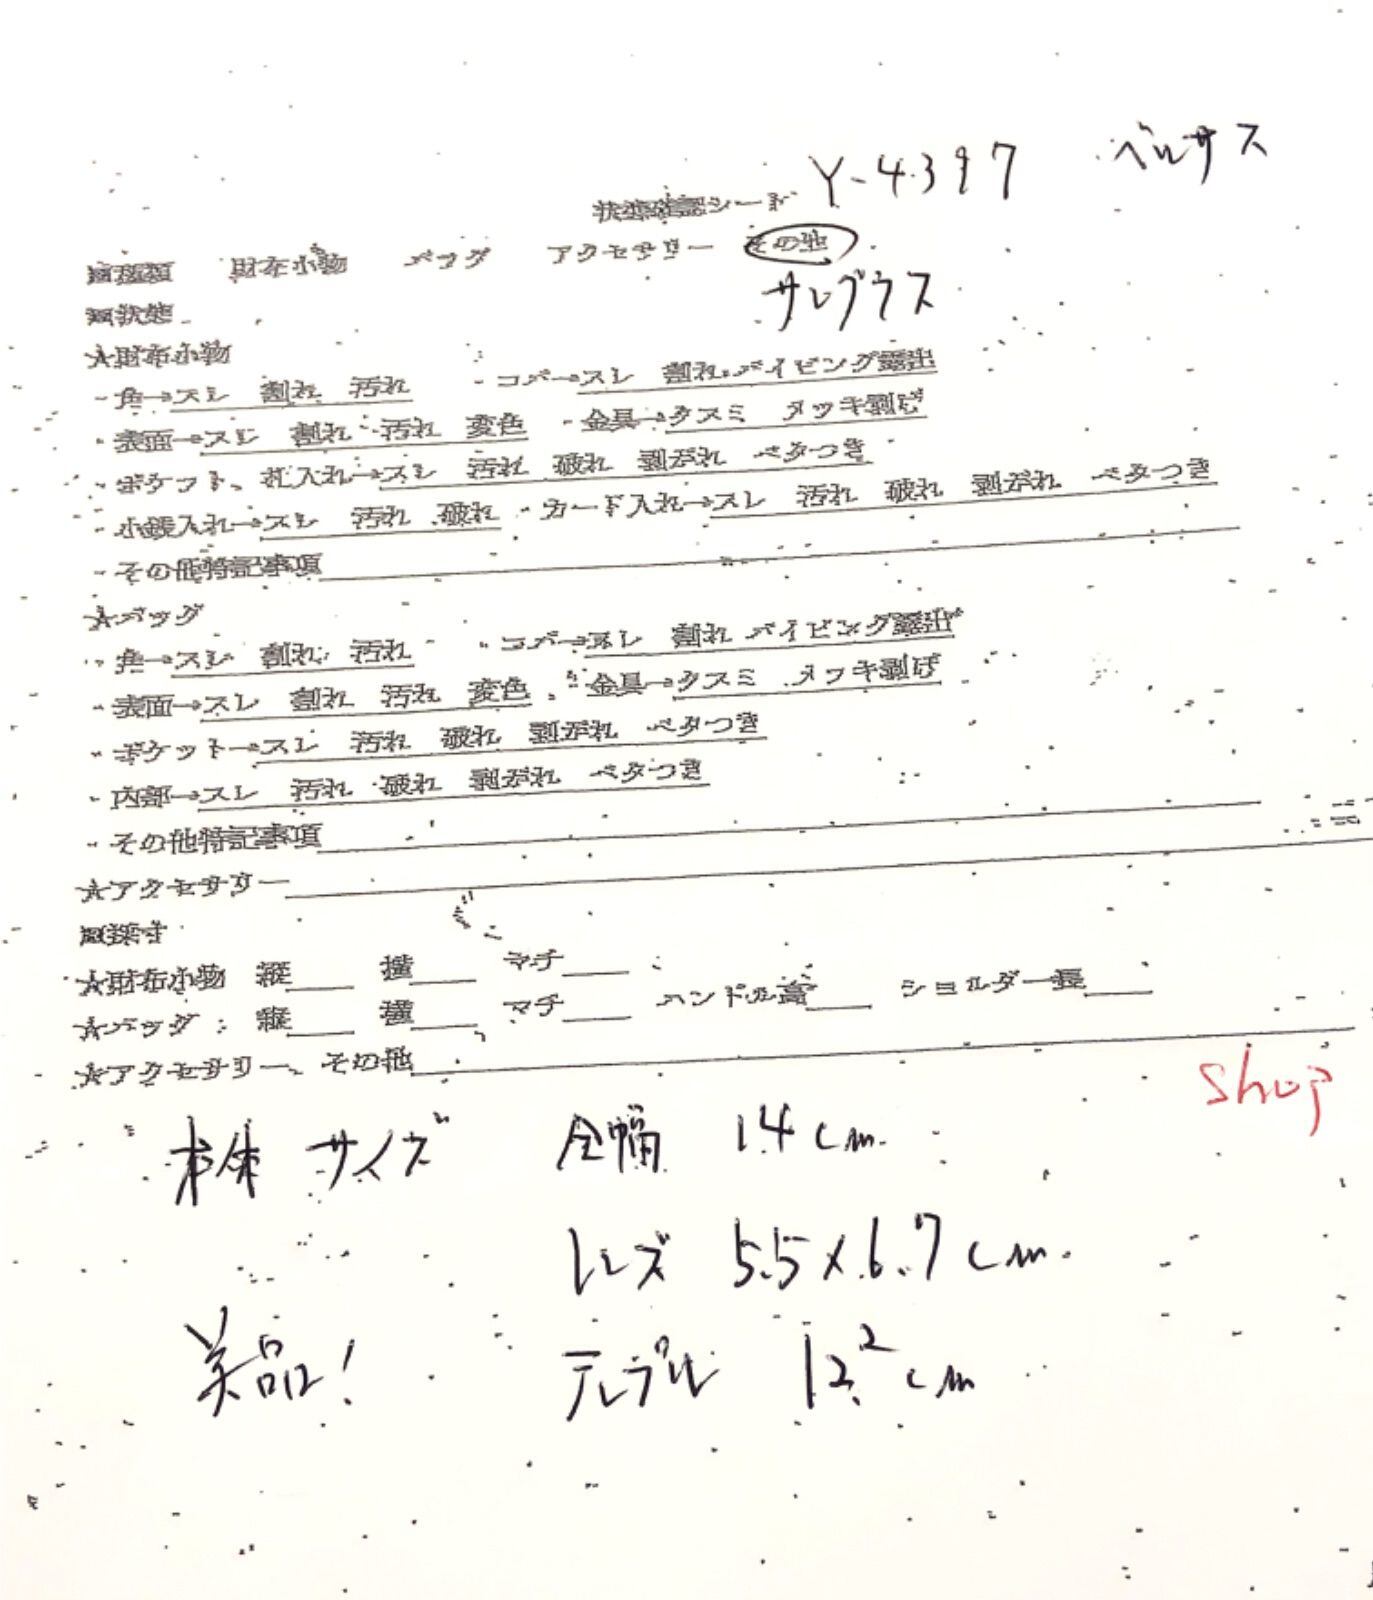 Y-4397 ベルサス
状態確認シート
■種類 財布小物 バッグ アクセサリー その他
サングラス
■状態
★財布小物
・角→スレ 割れ 汚れ ・コバ→スレ 割れ パイピング露出
・表面→スレ 割れ 汚れ 変色 ・金具→クスミ メッキ剥げ
・ポケット、札入れ→スレ 汚れ 破れ 剥がれ ベタつき
・小銭入れ→スレ 汚れ 破れ ・カード入れ→スレ 汚れ 破れ 剥がれ ベタつき
・その他特記事項
★バッグ
・角→スレ 割れ 汚れ ・コバ→スレ 割れ パイピング露出
・表面→スレ 割れ 汚れ 変色 ・金具→クスミ メッキ剥げ
・ポケット→スレ 汚れ 破れ 剥がれ ベタつき
・内部→スレ 汚れ 破れ 剥がれ ベタつき
・その他特記事項
★アクセサリー
■採寸
★財布小物 縦 横 マチ
★バッグ 縦 横 マチ ハンドル高 ショルダー長
★アクセサリー、その他
shop
本体サイズ 全幅 14cm
レンズ 5.5×6.7cm
美品! テンプル 12.2cm